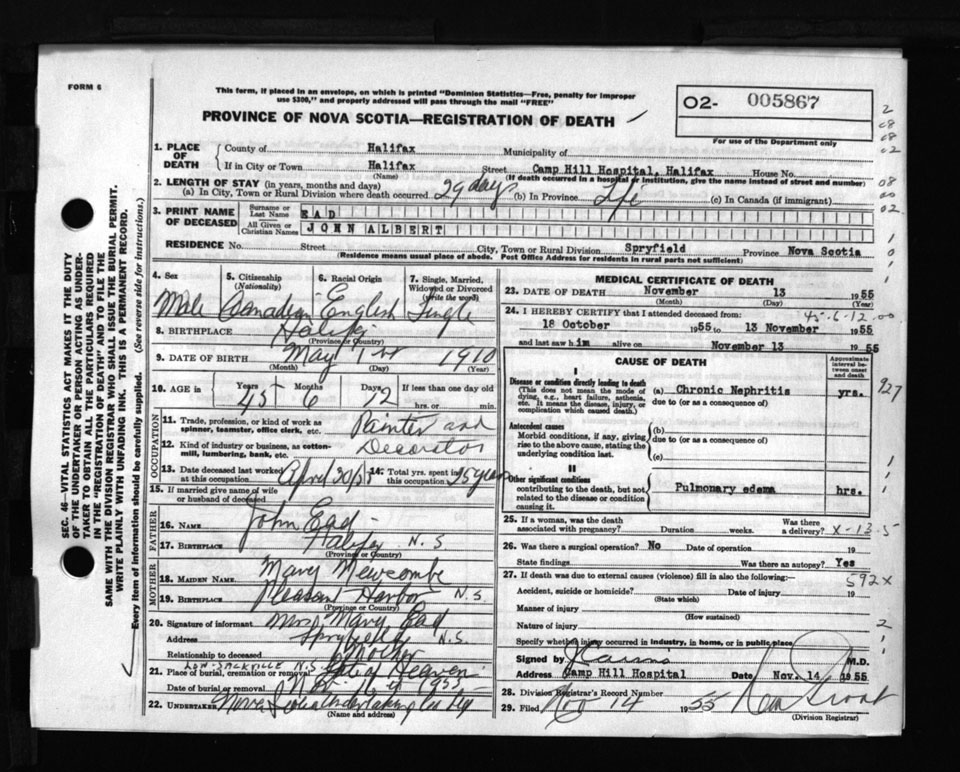 FORM 6
This form, if placed in an envelope, on which is printed "Dominion Statistics—Free, penalty for improper
use $300," and properly addressed will pass through the mail "FREE"
PROVINCE OF NOVA SCOTIA—REGISTRATION OF DEATH
O2- 005867
For use of the Department only
SEC. 46—VITAL STATISTICS ACT MAKES IT THE DUTY
OF THE UNDERTAKER OR PERSON ACTING AS UNDER-
TAKER TO OBTAIN ALL THE PARTICULARS REQUIRED
IN THE "REGISTRATION OF DEATH" AND TO FILE THE
SAME WITH THE DIVISION REGISTRAR WHO SHALL ISSUE THE BURIAL PERMIT.
WRITE PLAINLY WITH UNFADING INK. THIS IS A PERMANENT RECORD.
Every item of information should be carefully supplied. (See reverse side for instructions.)
1. PLACE OF DEATH
County of Halifax Municipality of
If in City or Town Halifax Street Camp Hill Hospital, Halifax House No.
(Name) (If death occurred in a hospital or institution, give the name instead of street and number)
2. LENGTH OF STAY (in years, months and days)
(a) In City, Town or Rural Division where death occurred 29 days (b) In Province Life (c) In Canada (if immigrant)
3. PRINT NAME OF DECEASED
Surname or Last Name EAD
All Given or Christian Names JOHN ALBERT
RESIDENCE No. Street City, Town or Rural Division Spryfield Province Nova Scotia
(Residence means usual place of abode. Post Office Address for residents in rural parts not sufficient)
4. Sex 5. Citizenship (Nationality) 6. Racial Origin 7. Single, Married, Widowed or Divorced (write the word)
Male Canadian English Single
8. BIRTHPLACE Halifax
(Province or Country)
9. DATE OF BIRTH May 1st 1910
(Month) (Day) (Year)
10. AGE in Years Months Days If less than one day old
45 6 12 hrs. or min.
OCCUPATION
11. Trade, profession, or kind of work as
spinner, teamster, office clerk, etc. Painter and
12. Kind of industry or business, as cotton-
mill, lumbering, bank, etc. Decorator
13. Date deceased last worked at this occupation April 30/55 14. Total yrs. spent in this occupation 25 years
15. If married give name of wife
or husband of deceased
FATHER
16. NAME John Ead
17. BIRTHPLACE Halifax N.S
(Province or Country)
MOTHER
18. MAIDEN NAME Mary Newcombe
19. BIRTHPLACE Pleasant Harbor N.S.
(Province or Country)
20. Signature of informant Mrs Mary Ead
Address Spryfield N.S.
Relationship to deceased Mother
LOW. SACKVILLE N.S.
21. Place of burial, cremation or removal Gate of Heaven
Date of burial or removal Nov. 16 1955
22. UNDERTAKER Nova Scotia Undertaking Co Ltd
(Name and address)
MEDICAL CERTIFICATE OF DEATH
23. DATE OF DEATH November 13 1955
(Month) (Day) (Year)
24. I HEREBY CERTIFY that I attended deceased from: 45-6-12.00
18 October 1955 to 13 November 1955
and last saw him alive on November 13 1955
CAUSE OF DEATH
Approximate interval between onset and death
I
Disease or condition directly leading to death
(This does not mean the mode of
dying, e.g., heart failure, asthenia,
etc. It means the disease, injury, or
complication which caused death.)
(a) Chronic Nephritis yrs.
due to (or as a consequence of)
Antecedent causes
Morbid conditions, if any, giving
rise to the above cause, stating the
underlying condition last.
(b)
due to (or as a consequence of)
(c)
II
Other significant conditions
contributing to the death, but not
related to the disease or condition
causing it.
Pulmonary edema hrs.
927
25. If a woman, was the death
associated with pregnancy? Duration weeks. Was there a delivery? X-13-5
26. Was there a surgical operation? No Date of operation 19
State findings Was there an autopsy? Yes
27. If death was due to external causes (violence) fill in also the following:— 592X
Accident, suicide or homicide? Date of injury 19
(State which)
Manner of injury
(How sustained)
Nature of injury
Specify whether injury occurred in industry, in home, or in public place
Signed by M.D.
Address Camp Hill Hospital Date Nov. 14 1955
28. Division Registrar's Record Number
29. Filed Nov 14 1955
(Division Registrar)